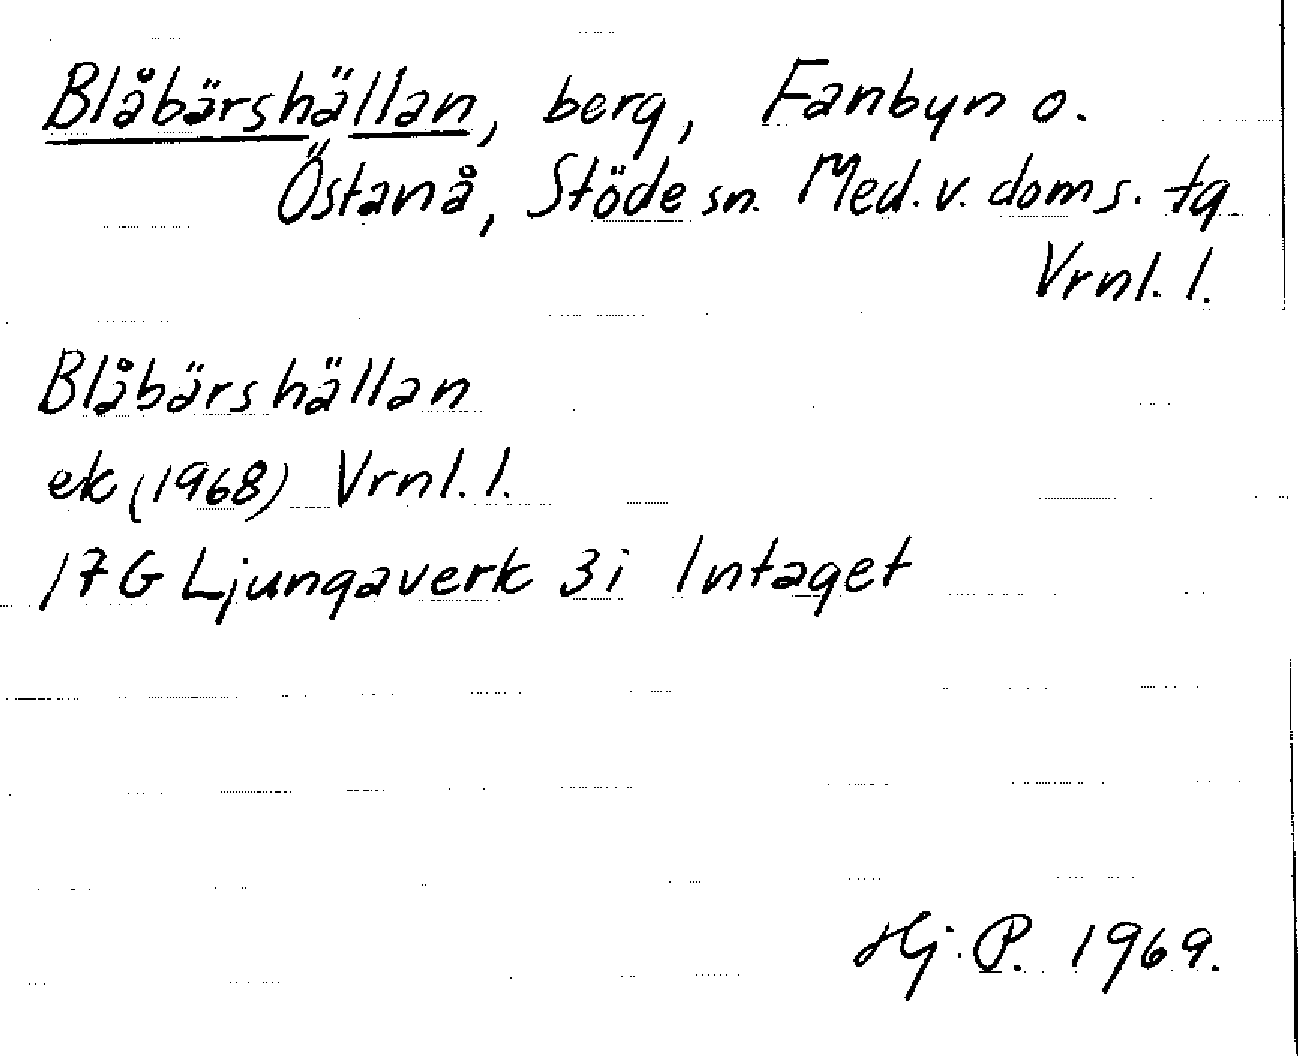 Blåbärshällan, berg, Fanbyn o.
Östanå, Stöde sn. Med. v. doms. tg
Vrnl. l.
Blåbärshällan
ek (1968) Vrnl. l.
17G Ljungaverk 3i Intaget
Hj. P. 1969.